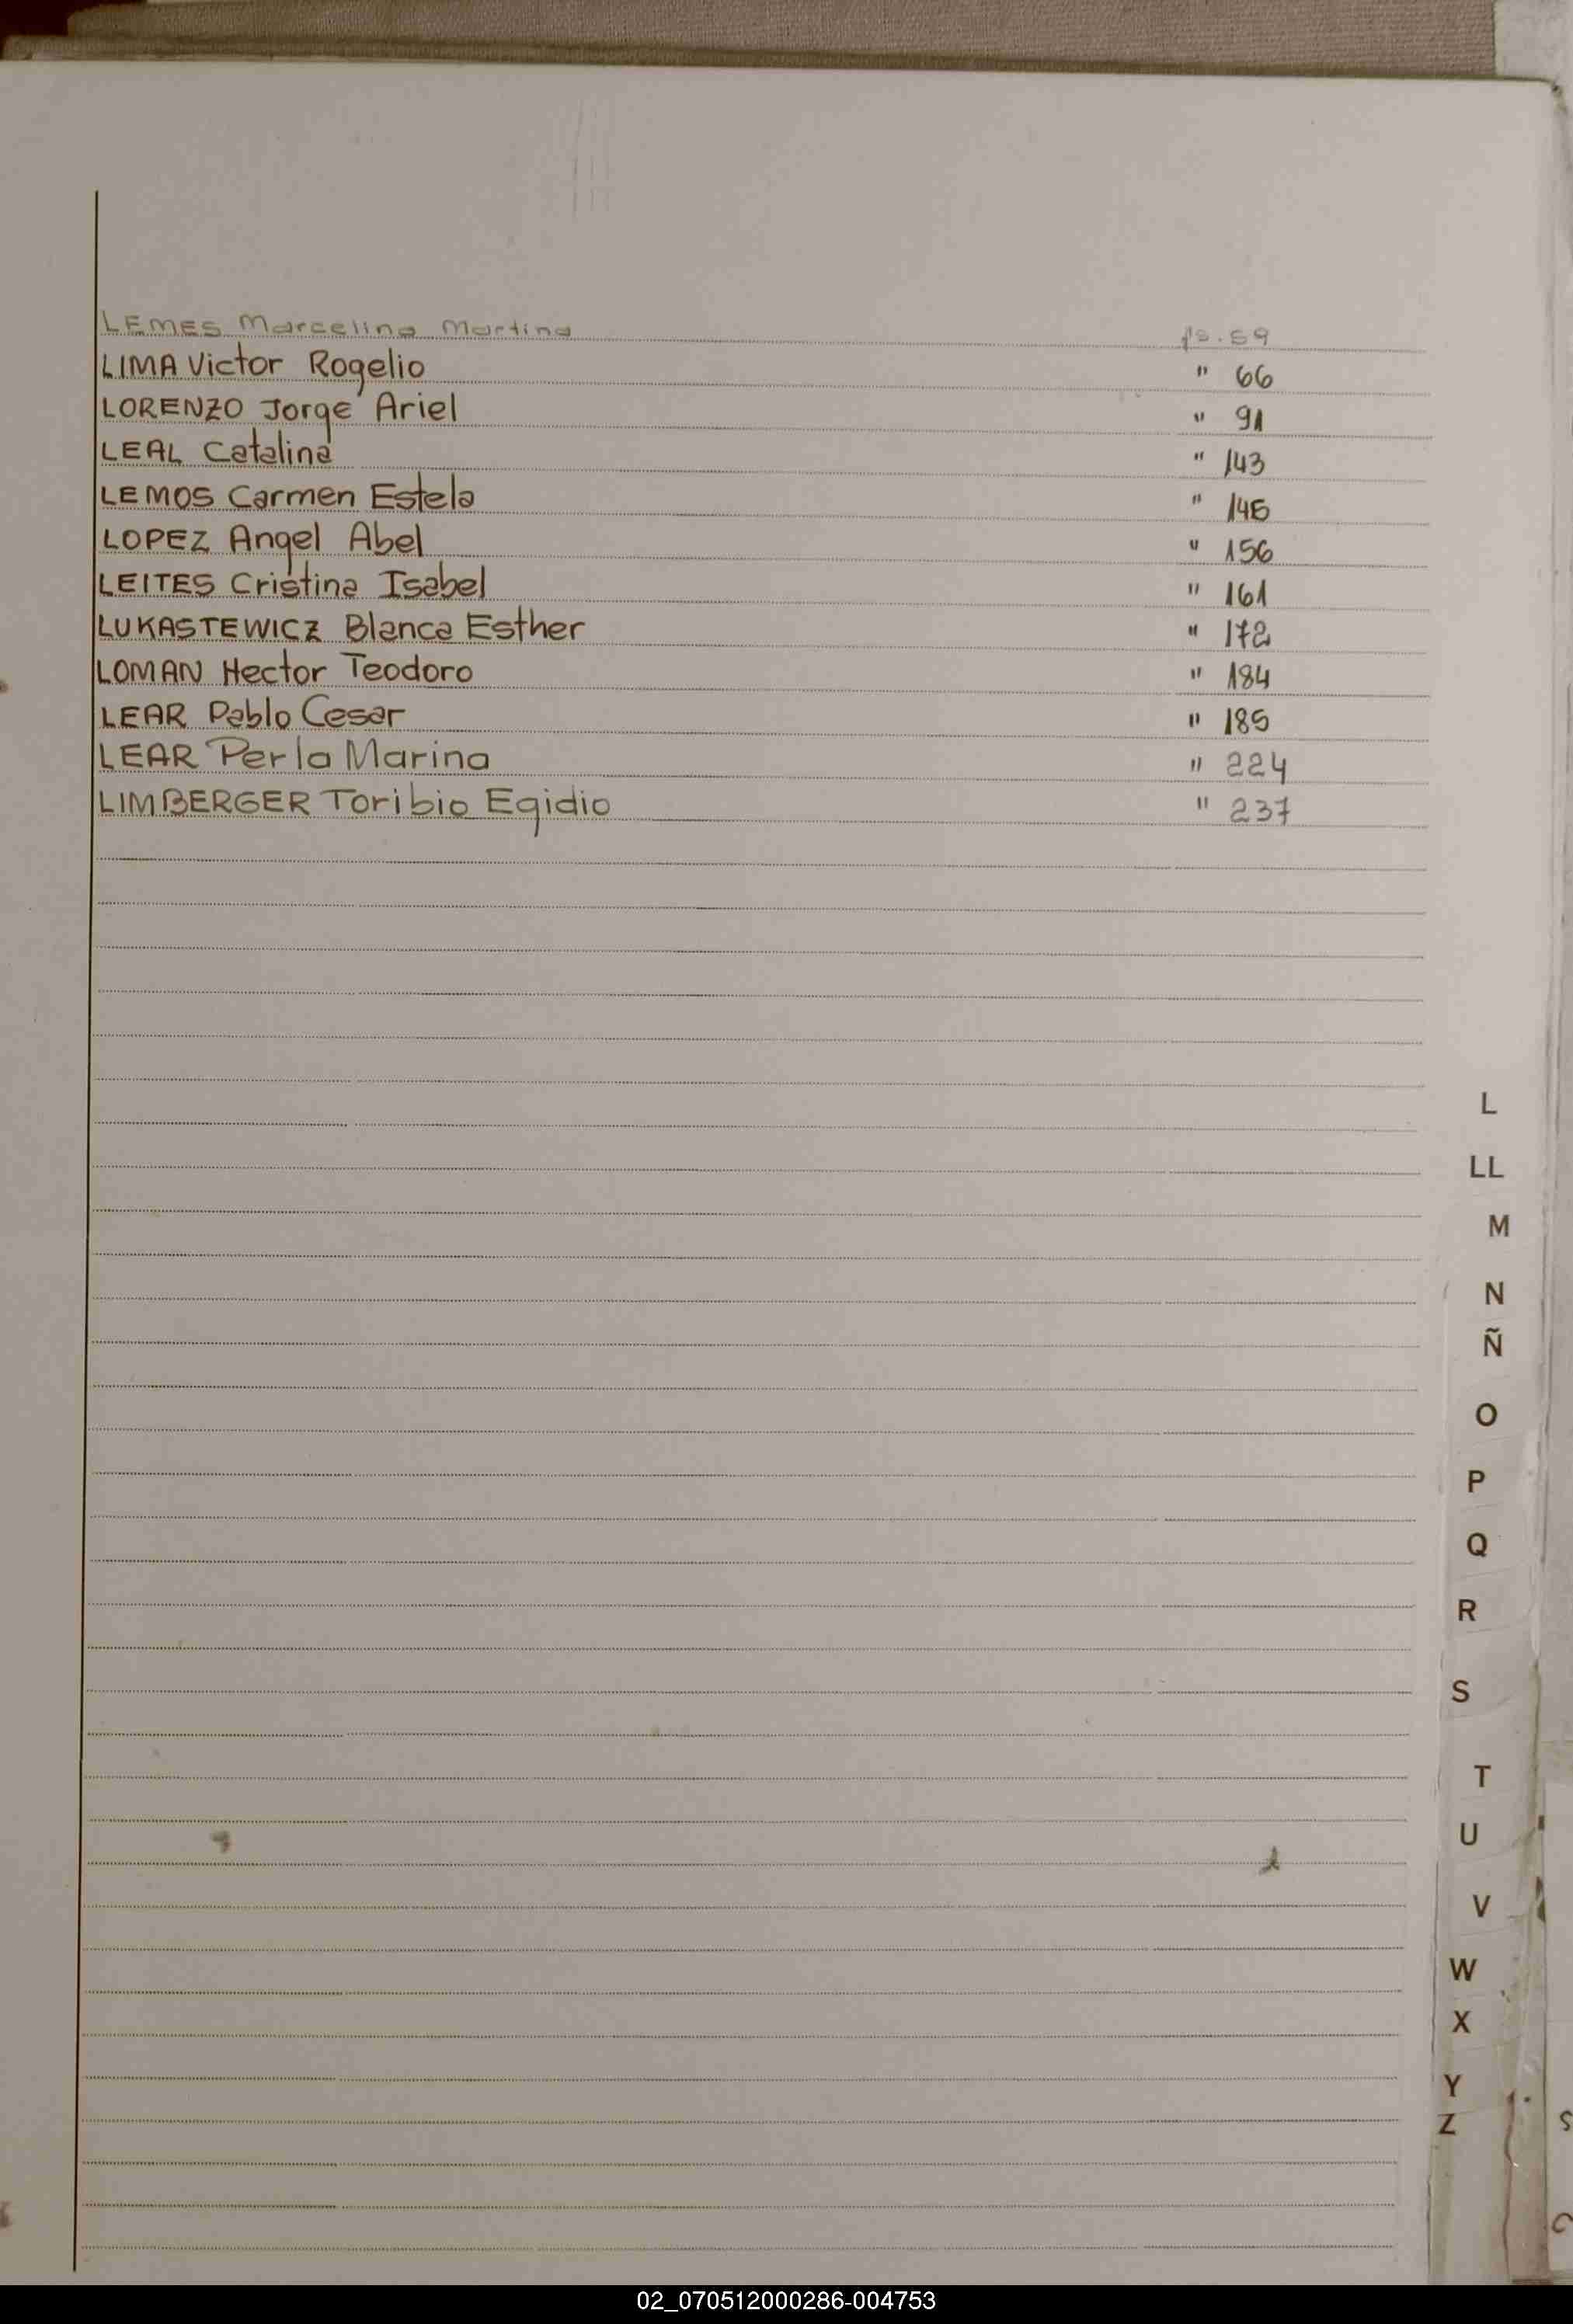 LEMES Marcelina Martina ps. 59
LIMA Victor Rogelio " 66
LORENZO Jorge Ariel " 91
LEAL Catalina " 143
LEMOS Carmen Estela " 145
LOPEZ Angel Abel " 156
LEITES Cristina Isabel " 161
LUKASTEWICZ Blanca Esther " 172
LOMAN Hector Teodoro " 184
LEAR Pablo Cesar " 185
LEAR Perla Marina " 224
LIMBERGER Toribio Egidio " 237
L
LL
M
N
Ñ
O
P
Q
R
S
T
U
V
W
X
Y
Z
02_070512000286-004753